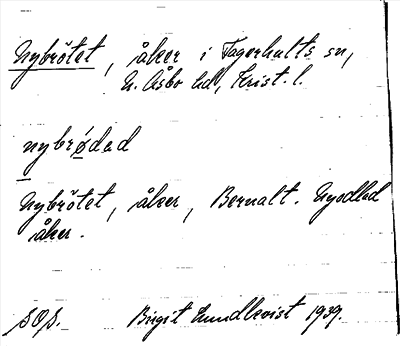 Nybrötet, åker i Fagerhults sn,
N. Åsbo hd, Krist. l.
nybrødad
Nybrötet, åker, Bernalt. Nyodlad
åker.
SOS. Birgit Lundkvist 1939.